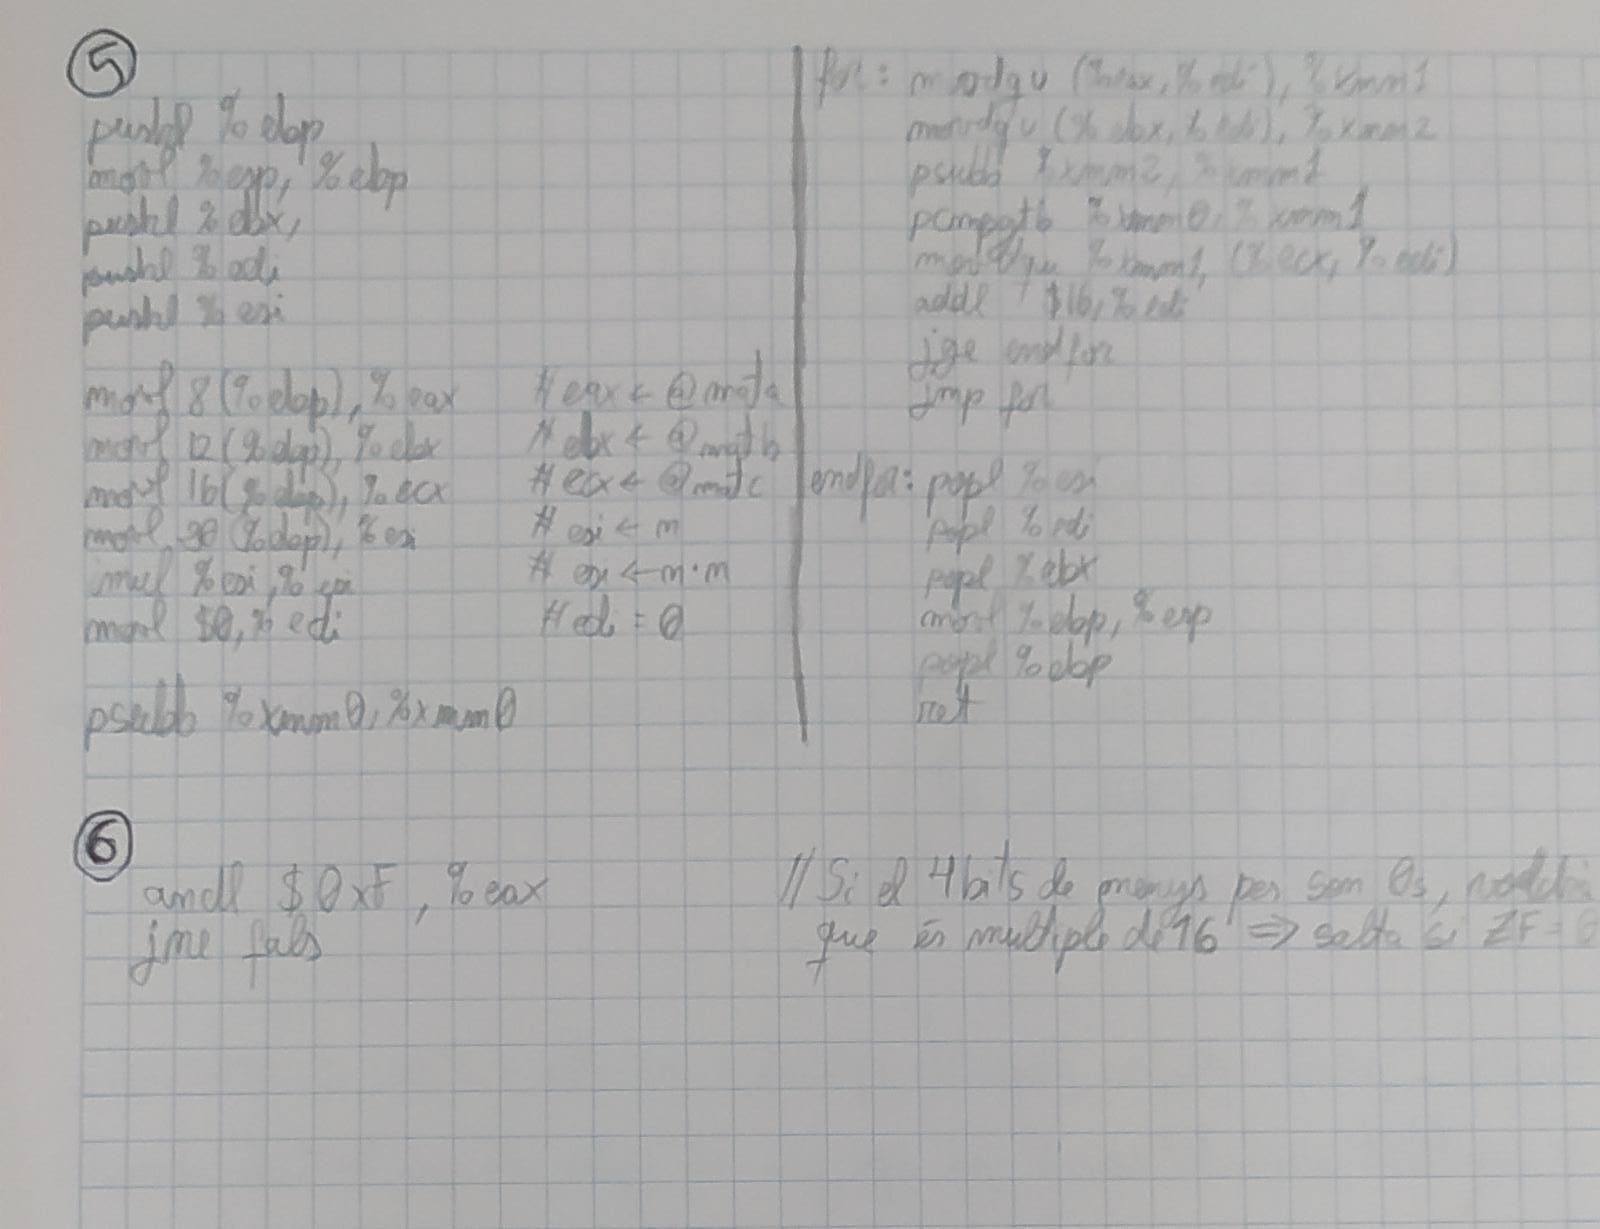 5
pushl %ebp
movl %esp, %ebp
pushl %ebx,
pushl %edi
pushl %esi
movl 8(%ebp), %eax #eax ← @mata
movl 12(%ebp), %ebx #ebx ← @matb
movl 16(%ebp), %ecx #ecx ← @matc
movl (%ebp), %esi # esi ← m
imul %esi, %esi # esi ← m·m
movl $0, %edi #edi = 0
psubb %xmm0, %xmm0
for: movdqu (%eax, %edi), %xmm1
movdqu (%ebx, %edi), %xmm2
psubb %xmm2, %xmm1
pcmpgtb %xmm0, %xmm1
movdqu %xmm1, (%ecx, %edi)
addl $16, %edi
jge endfor
jmp for
endfor: popl %esi
popl %edi
popl %ebx
movl %ebp, %esp
popl %ebp
ret
6
andl $0xF, %eax // Si el 4 bits de menys pes son 0s,
jne fals que és multiple de 16 ⇒ salta si ZF = 0